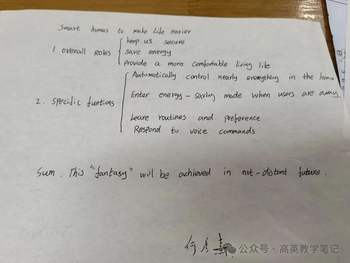 Smart homes to make life easier
keep us secure
1. overall roles
save energy
provide a more comfortable living life
Automatically control nearly everything in the home
Enter energy-saving mode when users are away
2. specific funtions
Leare routines and preference
Respond to voice commands
Sum. This "fantasy" will be achieved in not-distant future.
公众号·高英教学笔记